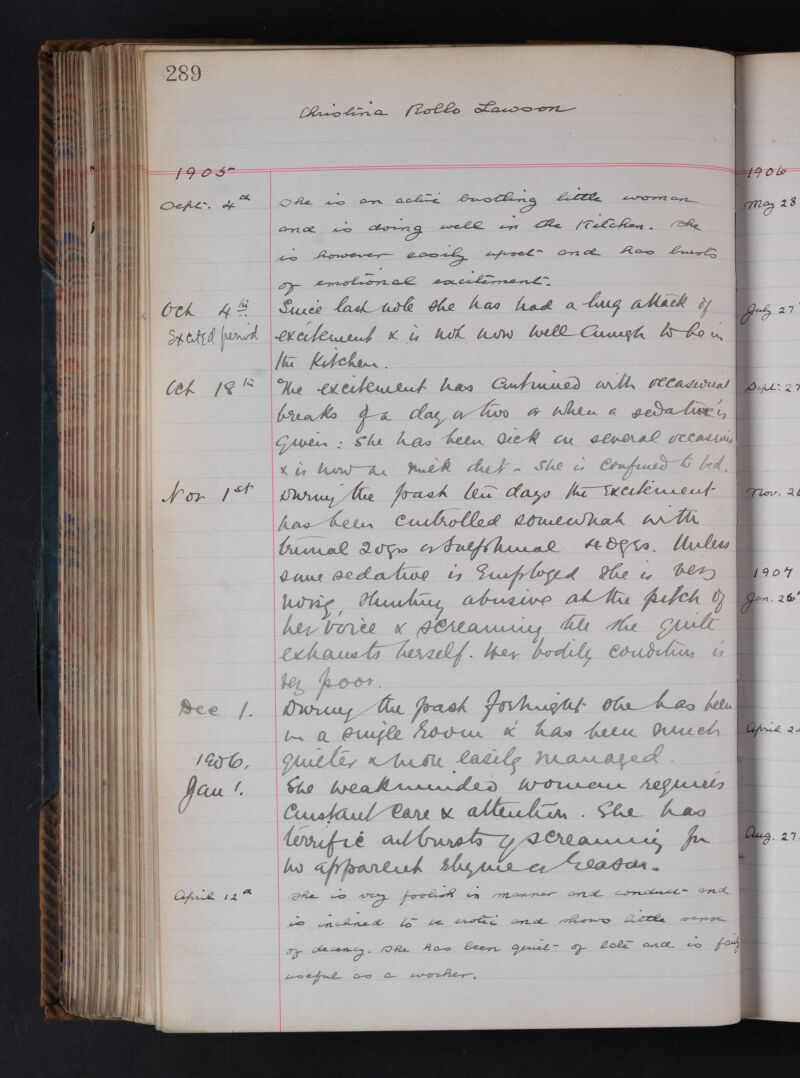 289
Christina Rollo Lawson
1905
Sept. 4th She is an active bustling little woman
and is doing well in the Kitchen. She
is however easily upset and has bursts
of emotional excitement.
Oct 4th Since last note she has had a long attack of
Excited period excitement & is not now well enough to be in
the Kitchen.
Oct 18th The excitement has continued with occasional
breaks of a day or two or when a sedative is
given: She has been sick on several occasions
& is now on milk diet - She is confined to bed.
Nov 1st During the past ten days the excitement
has been controlled somewhat with
trional 20grs or Sulphonal grs. Unless
some sedative is employed she is very
noisy, shouting abusive at the pitch of
her voice & screaming till she quite
exhausts herself. Her bodily condition is
very poor.
Dec 1. During the past fortnight she has been
in a single room & has been much
1906. quieter & more easily managed.
Jan 1. The weakminded woman requires
constant care & attention. She has
terrific outbursts of screaming for
no apparent rhyme or reason.
April 12th She is very foolish in manner and conduct and
is inclined to be erotic and shows little sense
of decency. She has been quiet of late and is fairly
useful as a worker.
1906
May 28
July 27
Sept: 27
Nov. 26
1907
Jan. 26
April 2
Aug. 27